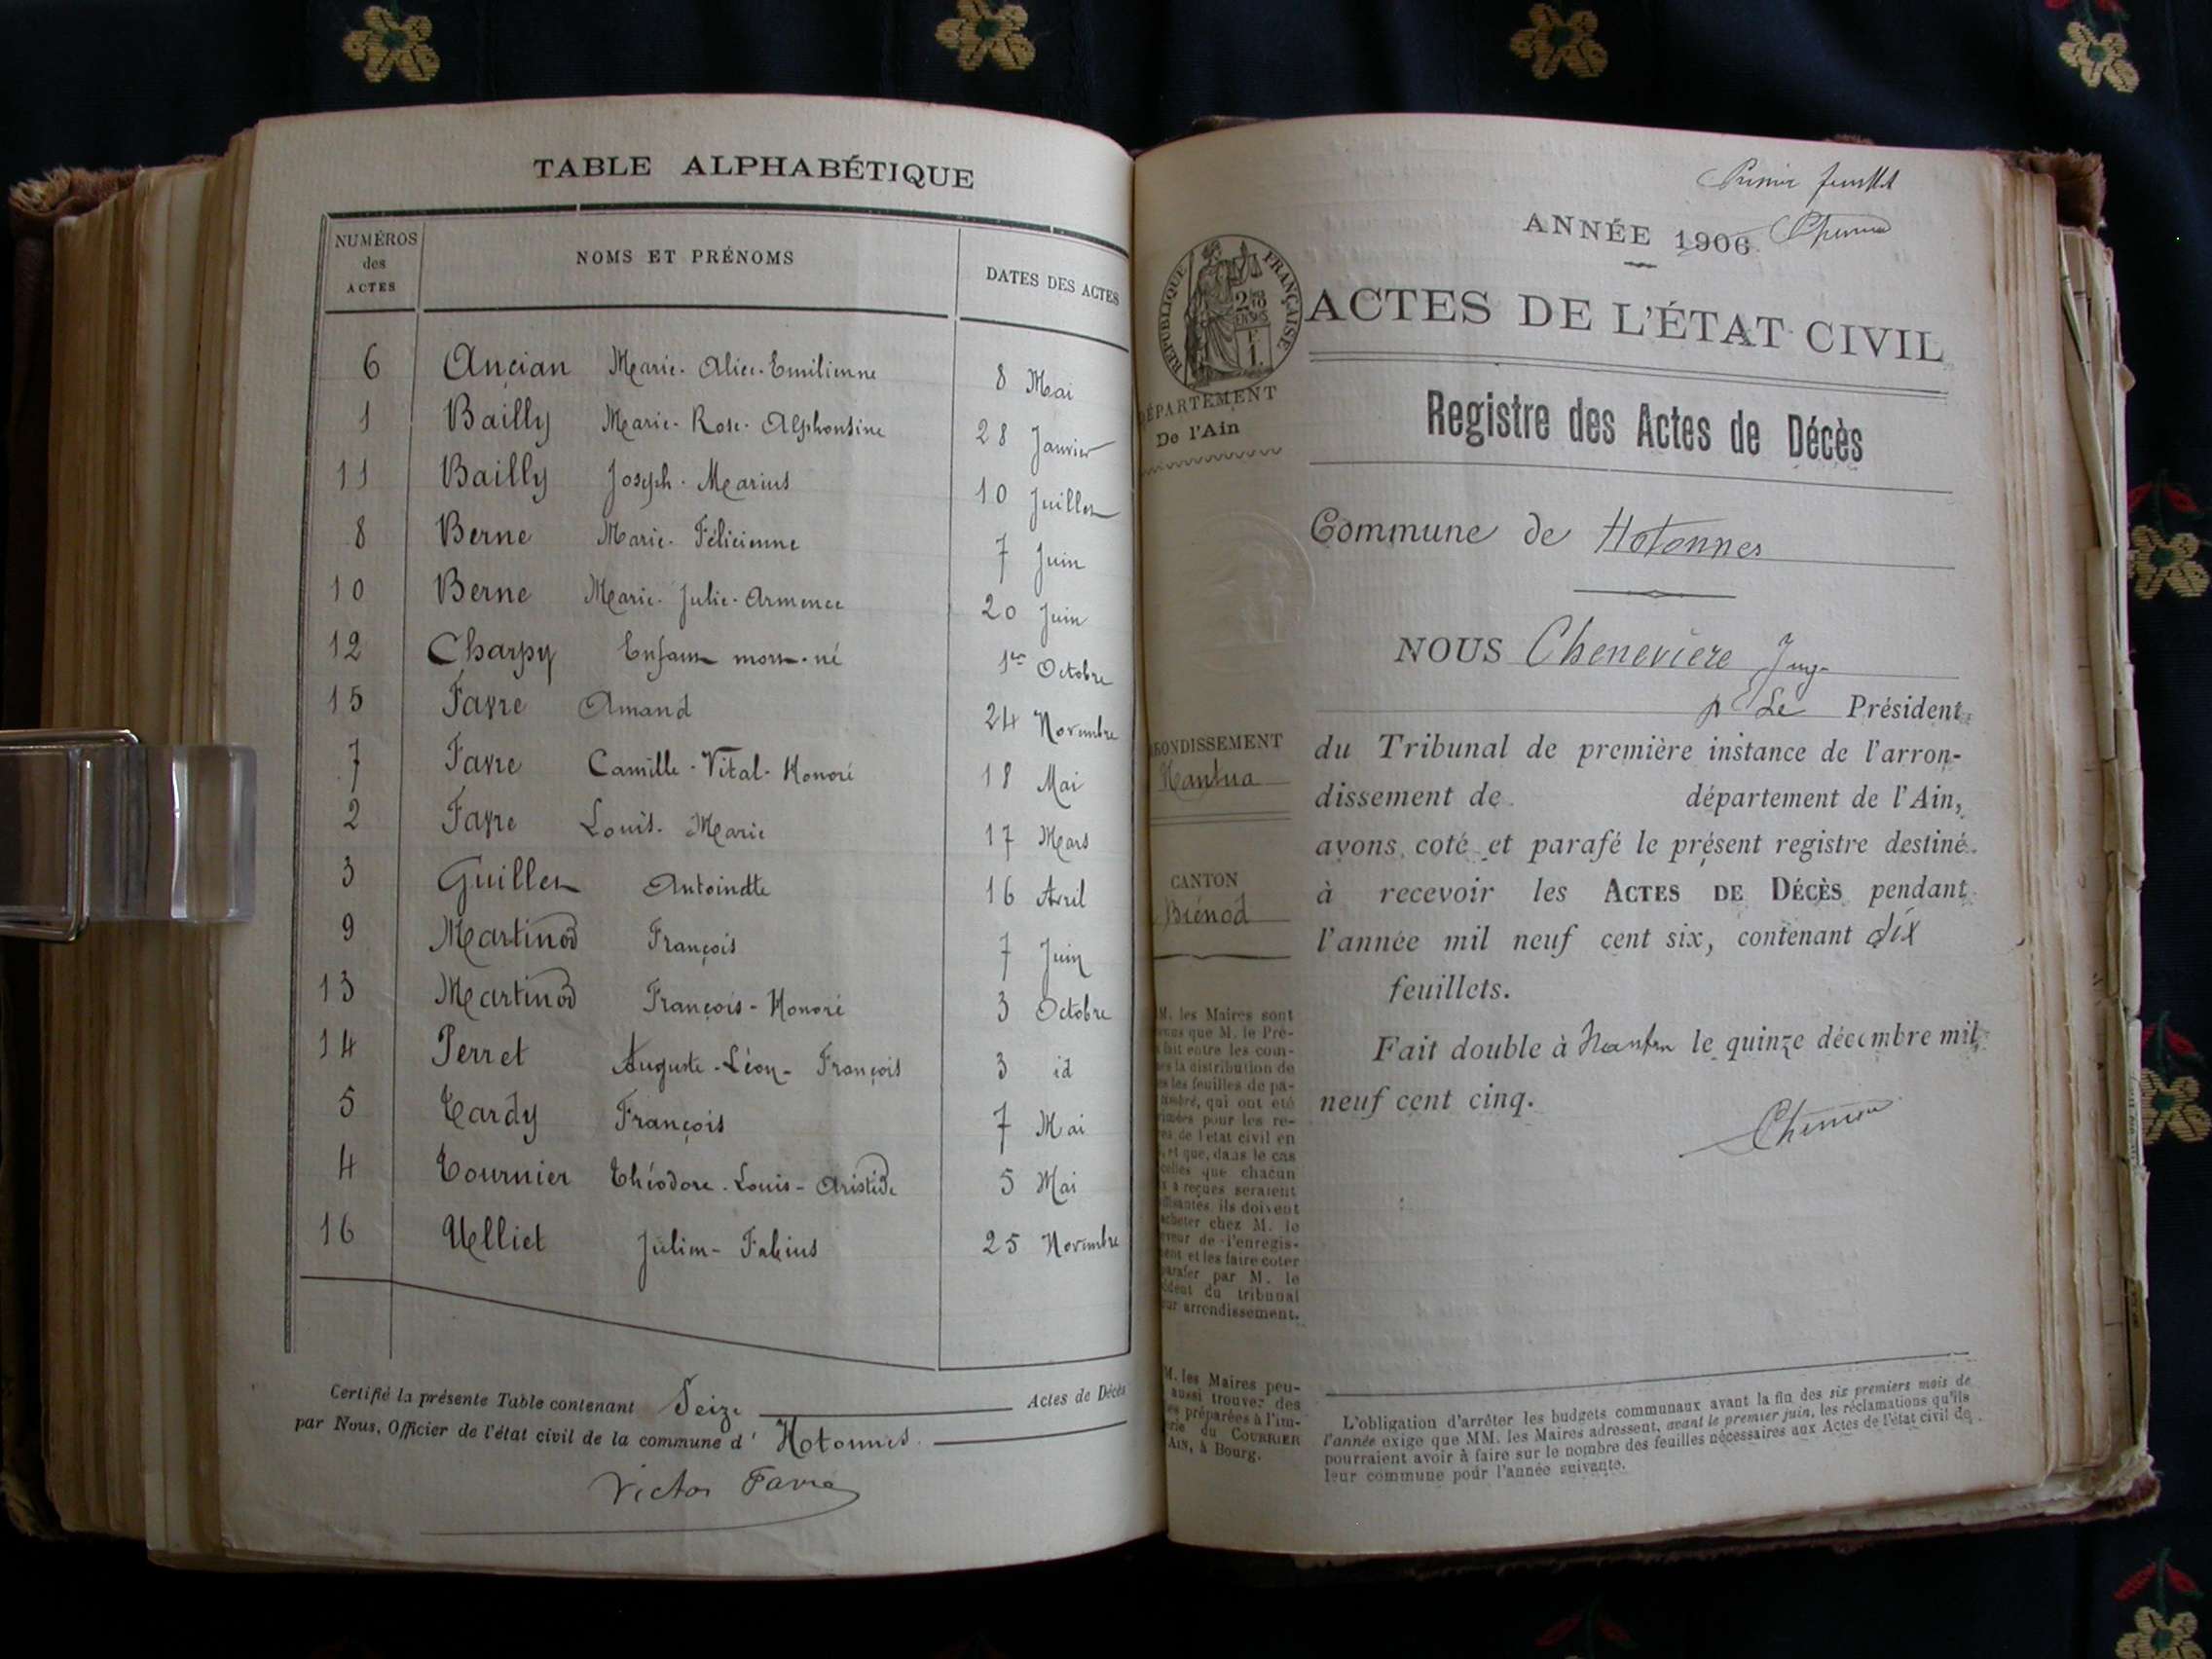 TABLE ALPHABÉTIQUE
NUMÉROS des ACTES NOMS ET PRÉNOMS DATES DES ACTES
6 Ancian Marie-Alice-Emilienne 8 Mai
1 Bailly Marie-Rose-Alphonsine 28 Janvier
11 Bailly Joseph-Marius 10 Juillet
8 Berne Marie-Félicienne 7 Juin
10 Berne Marie-Julie-Armence 20 Juin
12 Charpy Enfant mort-né 1er Octobre
15 Favre Amand 24 Novembre
7 Favre Camille-Vital-Honoré 18 Mai
2 Favre Louis-Marie 17 Mars
3 Guillet Antoinette 16 Avril
9 Martinod François 7 Juin
13 Martinod François-Honoré 3 Octobre
14 Perret Auguste-Léon-François 3 id
5 Tardy François 7 Mai
4 Tournier Théodore-Louis-Aristide 5 Mai
16 Velliet 25 Novembre
Certifié la présente Table contenant Seize Actes de Décès
par Nous, Officier de l'état civil de la commune d' Hotonnes.
Victor Favre
Premier feuillet
ANNÉE 1906.
RÉPUBLIQUE FRANÇAISE
ACTES DE L'ÉTAT CIVIL
DÉPARTEMENT
De l'Ain
Registre des Actes de Décès
Commune de Hotonnes
NOUS Chenevière Juge
p Le Président
du Tribunal de première instance de l'arron-
dissement de département de l'Ain,
avons coté et parafé le présent registre destiné
à recevoir les ACTES DE DÉCÈS pendant
l'année mil neuf cent six, contenant dix
feuillets.
Fait double à Nantua le quinze décembre mil
neuf cent cinq.
ARRONDISSEMENT
Nantua
CANTON
Brénod
M. les Maires sont
que M. le Pré-
fait entre les com-
la distribution de
les feuilles de pa-
qui ont été
pour les re-
de l'état civil en
et que, dans le cas
celles que chacun
a reçues seraient
ils doivent
acheter chez M. le
de l'enregis-
et les faire coter
parafer par M. le
du tribunal
arrondissement.
M. les Maires peu-
aussi trouver des
préparées à l'im-
du COURRIER
AIN, à Bourg.
L'obligation d'arrêter les budgets communaux avant la fin des six premiers mois de
l'année exige que MM. les Maires adressent, avant le premier juin, les réclamations qu'ils
pourraient avoir à faire sur le nombre des feuilles nécessaires aux Actes de l'état civil de
leur commune pour l'année suivante.